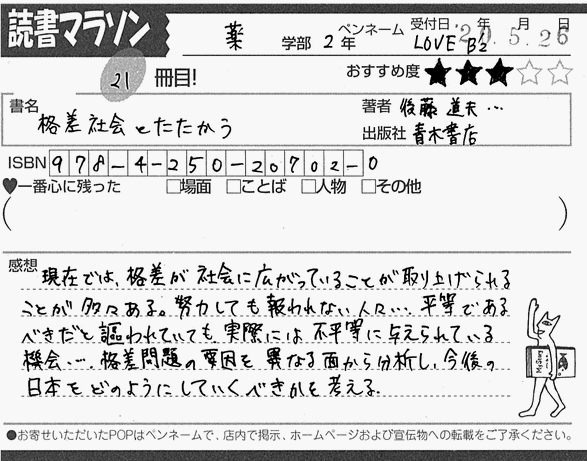 読書マラソン
薬 学部 2年
ペンネーム LOVE B2
受付日 年 月 日
'20.5.26
21 冊目!
おすすめ度 ★★★☆☆
書名 格差社会とたたかう
著者 後藤 道夫…
出版社 青木書店
ISBN 978-4-250-20702-0
♥一番心に残った □場面 □ことば □人物 □その他
( )
感想
現在では、格差が社会に広がっていることが取り上げられる
ことが多々ある。努力しても報われない人々…、平等である
べきだと謳われていても、実際には不平等に与えられている
機会…。格差問題の要因を異なる面から分析し、今後の
日本をどのようにしていくべきかを考える。
●お寄せいただいたPOPはペンネームで、店内で掲示、ホームページおよび宣伝物への転載をご了承ください。